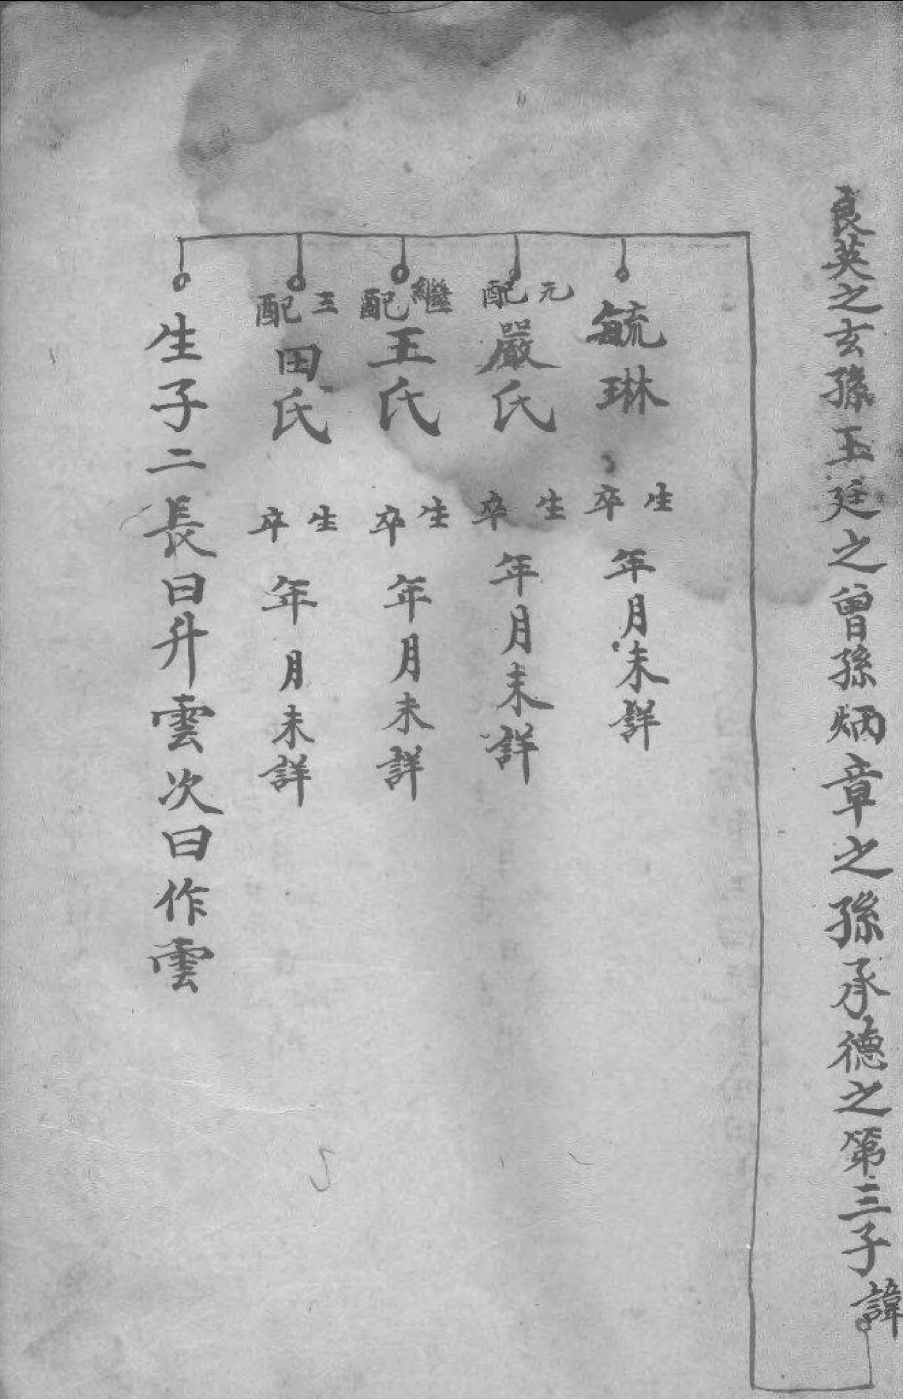 良英之玄孫玉廷之曾孫炳章之孫承德之第三子諱
毓琳 生卒年月未詳
元配嚴氏 生卒年月未詳
繼配王氏 生卒年月未詳
三配田氏 生卒年月未詳
生子二長曰升雲次曰作雲